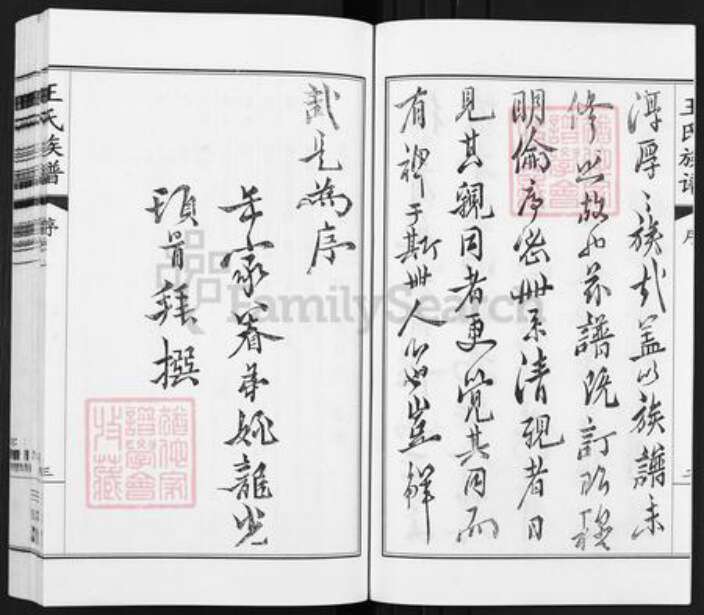 王氏族譜
序
淳厚之族哉蓋以族譜未
修之故也茲譜既訂昭穆
明倫序密世系清親者日
見其親同者更覺其同而
有裨于斯世人心豈鮮
哉是為序
年家眷弟姚龍光
頓首拜撰
王氏族譜
序
三
FamilySearch